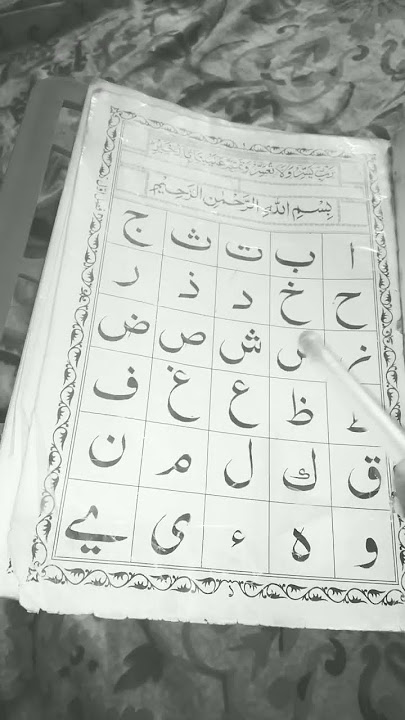 رَبِّ يَسِّرْ وَلَا تُعَسِّرْ وَتَمِّمْ بِالْخَيْرِ
بِسْمِ اللّٰهِ الرَّحْمٰنِ الرَّحِيْمِ
ا ب ت ث ج
ح خ د ذ ر
ز س ش ص ض
ظ ع غ ف
ق ك ل م ن
و ه ء ی ے